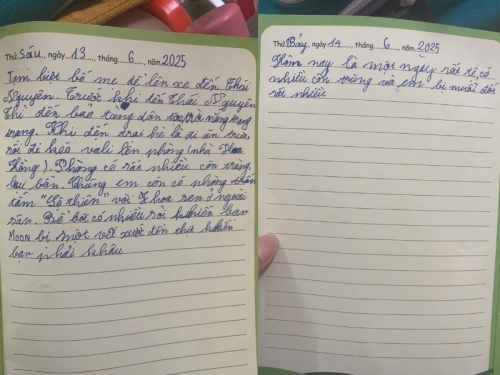 Thứ Sáu, ngày 13, tháng 6, năm 2025
Tạm biệt bố mẹ để lên xe đến Thái
Nguyên. Trước khi đến Thái Nguyên
thì đến bảo tàng dân tộc trời nắng trang
trạng. Khi đến trại hè là đi ăn trưa
rồi đi kéo vali lên phòng (nhà Hoa
Hồng). Phòng có rất nhiều côn trùng,
bụi bẩn. Chúng em còn có phòng tắm
"Lộ thiên" với 7 hoa sen ở ngoài
sân. Bể bơi có nhiều rồi khiến bạn
Moon bị một vết xước đến thịt khiến
bạn phải khâu
Thứ Bảy, ngày 14, tháng 6, năm 2025
Hôm nay là một ngày rất tệ, có
nhiều côn trùng và em bị muỗi đốt
rất nhiều